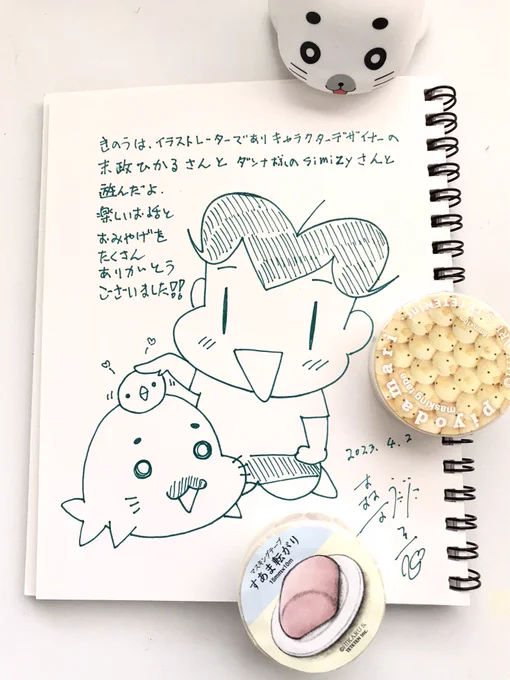 きのうは、イラストレーターでありキャラクターデザイナーの
末政ひかるさんと ダンナさんのsimizyさんと
遊んだよ.
楽しいお話と
おみやげを
たくさん
ありがとう
ございました!!
2023.4.2
piyodamari
masking tape
マスキングテープ
すあま転がり
18mm×10m